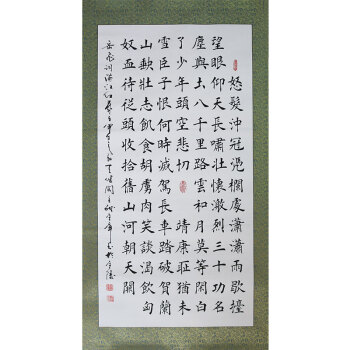 怒髮沖冠凴欄處瀟瀟雨歇擡
望眼仰天長嘯壯懷激烈三十功名
塵與土八千里路雲和月莫等閑白
了少年頭空悲切 靖康耻猶未
雪臣子恨何時滅駕長車踏破賀蘭
山缺壯志飢食胡虜肉笑談渴飲匈
奴血待從頭收拾舊山河朝天闕
岳飛词满江红